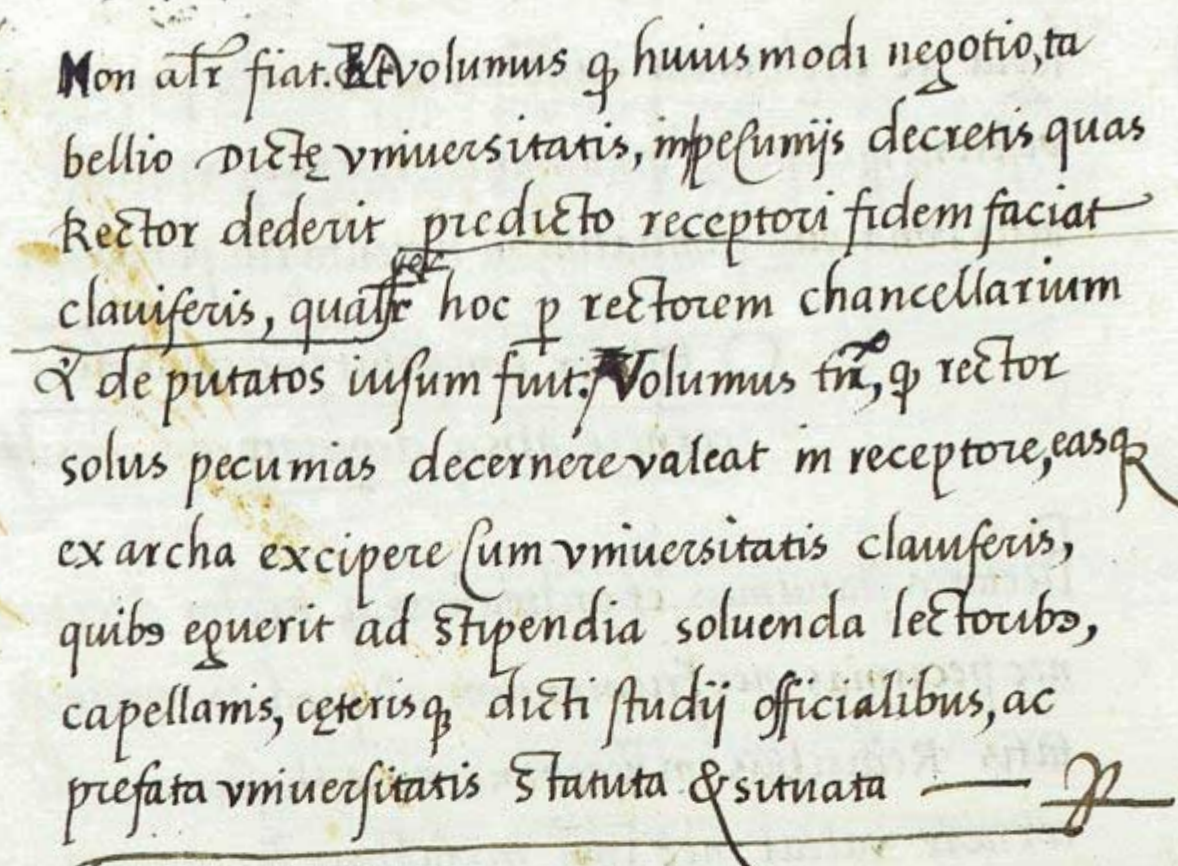 Non alr̄ fiat. Et volumus ꝙ huiusmodi negotio, ta
bellio dictę vniuersitatis, in pecunijs decretis quas
Rector dederit predicto receptori fidem faciat
clauiferis, qualr̄ hoc ꝑ rectorem chancellarium
& deputatos iusum fuit. Volumus tn̄, ꝙ rector
solus pecunias decernere valeat in receptore, easqꝫ
ex archa excipere cum vniuersitatis clauiferis,
quibꝰ eguerit ad stipendia soluenda lectoribꝰ,
capellanis, cęterisqꝫ dicti studij officialibus, ac
prefata vniuersitatis statuta & situata